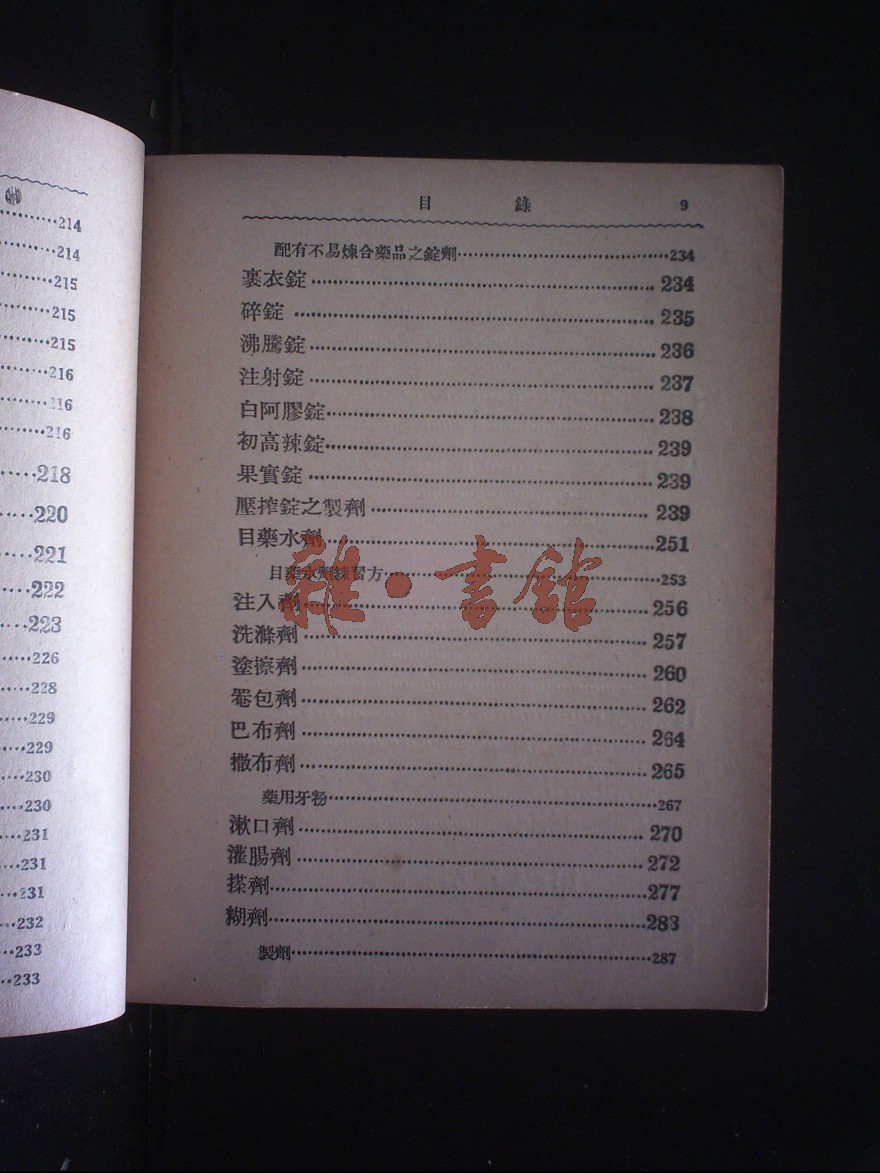 214
214
215
215
215
216
216
216
218
220
221
222
223
226
228
229
229
230
230
231
231
231
232
233
233
目錄 9
配有不易煉合藥品之錠劑 234
裹衣錠 234
碎錠 235
沸騰錠 236
注射錠 237
白阿膠錠 238
初高辣錠 239
果實錠 239
壓搾錠之製劑 239
目藥水劑 251
目藥水劑練習方 253
注入劑 256
洗滌劑 257
塗擦劑 260
罨包劑 262
巴布劑 264
撒布劑 265
藥用牙粉 267
漱口劑 270
灌腸劑 272
搽劑 277
糊劑 283
製劑 287
雜·書館